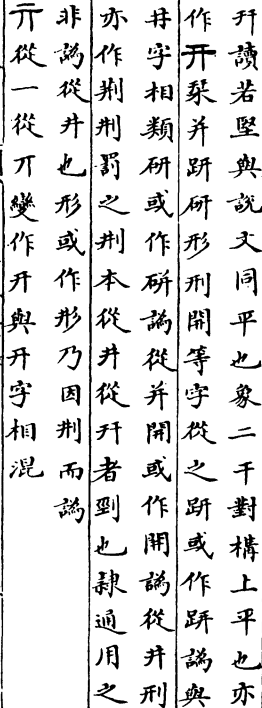 幵讀若堅與說文同平也象二干對構上平也亦
作开桒并趼研形刑開等字從之趼或作跰譌與
井字相類研或作硑譌從并開或作閞譌從井刑
亦作荆荆罰之荆本從井從幵者剄也隸通用之
非譌從井也形或作㣜乃因荆而譌
亓從一從丌變作开與开字相混